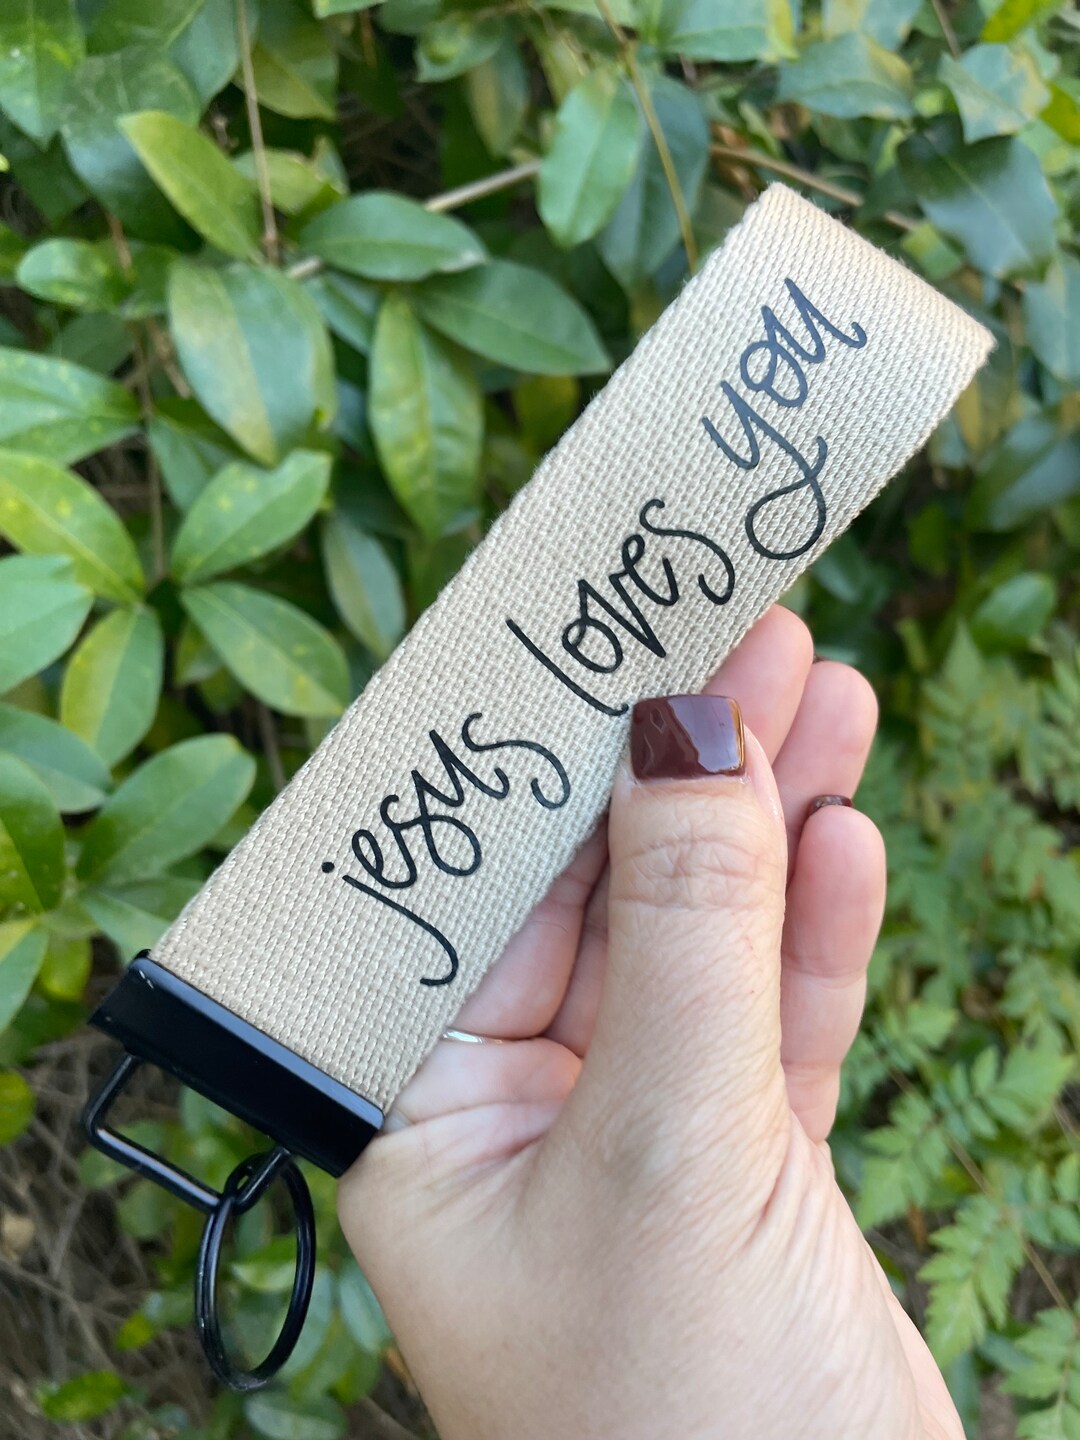 jesus loves you